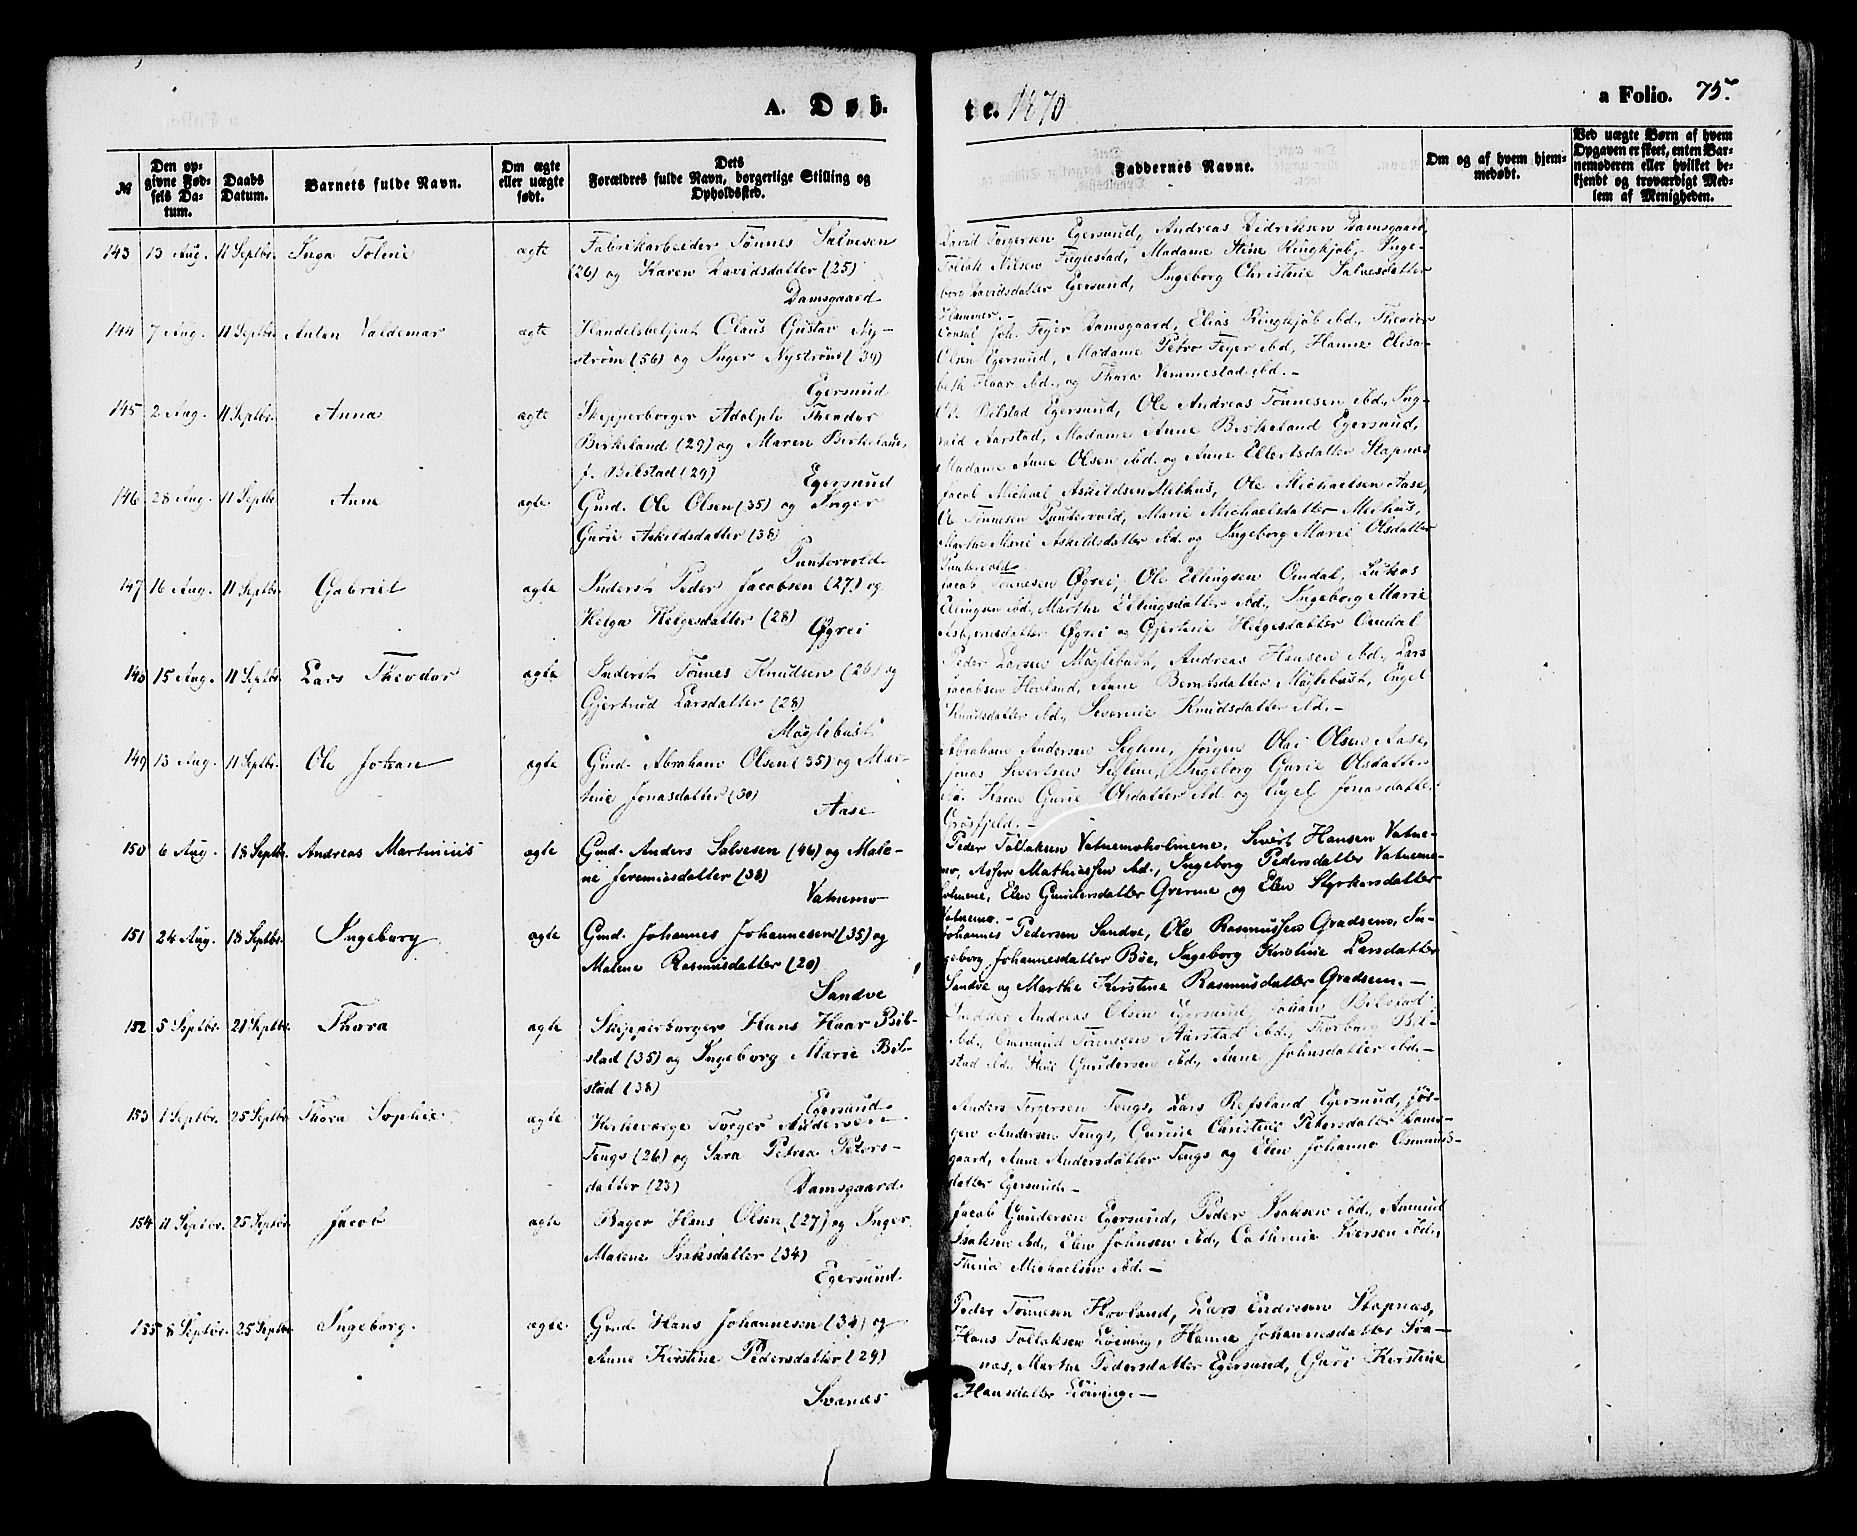 A. Døb-
te. 1870
a Folio. 75.
№
Den op-
givne Fød-
sels Da-
tum.
Daabs
Datum.
Barnets fulde Navn.
Om ægte
eller uægte
født.
Dets
Forældres fulde Navn, borgerlige Stilling og
Opholdssted.
Faddernes Navne.
Om og af hvem hjem-
medøbt.
Ved uægte Børn af hvem
Opgaven er skeet, enten Bar-
nemoderen eller hvilket be-
kjendt og troværdigt Med-
lem af Menigheden.
143 13 Aug. 11 Septbr. Inga Toline ægte Fabrikarbeider Tönnes Salvesen
(26) og Karen Davidsdatter (25)
Damsgaard
David Torgersen Egersund, Andreas Didriksen Damsgaard,
Tollak Nilsen Fuglestad, Madame Stine Ringkjøb, Inge-
borg Davidsdatter Egersund, Ingeborg Christine Salvesdatter
144 7 Aug. 11 Septbr. Anton Valdemar ægte Handelsbetjent Claus Gustav Ny-
ström (56) og Inger Nyström (39)
Egersund
Consul Joh. Feyer Damsgaard, Elias Ringkjøb ibd., Theodor
Olsen Egersund, Madame Petra Feyer ibd, Hanne Elisa-
beth Haar ibd., og Thora Vemmestad ibd. —
145 2 Aug. 11 Septbr. Anna ægte Skipperborger Adolph Theodor
Birkeland (29) og Maren Birkeland,
f. Bilstad (29)
Egersund
O. Bilstad Egersund, Ole Andreas Tönnesen ibd., Ing-
vald Aarstad, Madame Anne Birkeland Egersund,
Madame Anne Olsen ibd. og Anne Ellertsdatter Stapnes
146 28 Aug. 11 Septbr Anne ægte Gmd. Ole Olsen (35) og Inger
Gurie Askildsdatter (38)
Puntervold.
Jacob Michael Askildsen Methus, Ole Michaelsen Aase,
Ole Tönnesen Puntervold, Marie Michaelsdatter Methus,
Marthe Marie Askildsdatter ibd. og Ingeborg Marie Olsdatter
Puntervold
147 16 Aug. 11 Septbr. Gabriel ægte Inderst Peder Jacobsen (27) og
Helga Helgesdatter (28)
Øgrei
Jacob Tönnesen Øgrei, Ole Ellingsen Omdal, Lukas
Ellingsen ibd., Marthe Ellingsdatter ibd., Ingeborg Marie
Asbjörnsdatter Øgrei og Gjertine Helgesdatter Omdal
148 15 Aug. 11 Septbr. Lars Theodor ægte Inderst Tönnes Knudsen (26) og
Gjertrud Larsdatter (28)
Möglebust
Peder Larsen Möglebust, Andreas Hansen ibd., Lars
Jacobsen Hovland, Anne Berntsdatter Möglebust, Engel
Knudsdatter ibd., Severine Knudsdatter ibd. —
149 13 Aug. 11 Septbr. Ole Johan ægte Gmd. Abraham Olsen (35) og Mar-
thine Jonasdatter (30)
Aase
Abraham Andersen Seglem, Jörgen Olai Olsen Aase,
Jonas Sivertsen Seglem, Ingeborg Gurie Olsdatter
ibd. Karen Gurie Olsdatter ibd. og Engel Jonasdatter
Grösfjeld. —
150 6 Aug. 18 Septbr. Andreas Martinius ægte Gmd. Anders Salvesen (46) og Male-
ne Jeremiasdatter (38)
Vatnemo
Peder Tollaksen Vatnemoholmene, Sivert Hansen Vatne-
mo, Asser Mathiassen ibd., Ingeborg Pedersdatter Vatnemo-
holmene, Elen Gundersdatter Qverme og Elen Styrkorsdatter
Vatnemo. —
151 24 Aug. 18 Septbr. Ingeborg ægte Gmd. Johannes Johannesen (35) og
Malene Rasmusdatter (20)
Sandve
Johannes Pedersen Sandve, Ole Rasmussen Gradsem, In-
geborg Johannesdatter Böe, Ingeborg Kirstine Larsdatter
Sandve og Marthe Kirstine Rasmusdatter Gradsem. —
152 5 Septbr. 21 Septbr. Thora ægte Skipperborger Hans Haar Bil-
stad (35) og Ingeborg Marie Bil-
stad (38)
Egersund
Snedker Andreas Olsen Egersund, Johan Bilstad
ibd., Ommund Tönnesen Aarstad ibd., Thorborg Bil-
stad ibd., Stine Gundersen ibd., Anne Johnsdatter ibd. —
153 1 Septbr. 25 Septbr Thora Sophie ægte Kirkeværge Torger Andersen
Tengs (26) og Sara Petrea Peters-
datter (23) Damsgaard.
Anders Torgersen Tengs, Lars Refsland Egersund, Jör-
gen Andersen Tengs, Gurine Christine Petersdatter Dams-
gaard, Anne Andersdatter Tengs og Elen Johanne Osmunds-
datter Egersund. —
154 11 Septbr. 25 Septbr. Jacob ægte Bager Hans Olsen (27) og Inger
Malene Isaksdatter (34)
Egersund
Jacob Gundersen Egersund, Peder Isaksen ibd., Aamund
Isaksen ibd., Elen Johnsen ibd., Cathrine Iversen ibd.,
Thrine Michaelsen ibd. —
155 8 Septbr. 25 Septbr. Ingeborg. ægte. Gmd. Hans Johannesen (34) og
Anne Kirstine Pedersdatter (29)
Svanæs
Peder Tönnesen Hovland, Lars Endresen Stapnæs,
Hans Tollaksen Löining, Hanne Johannesdatter Sva-
næs, Marthe Pedersdatter Egersund, Guri Kirstine
Hansdatter Löining. —